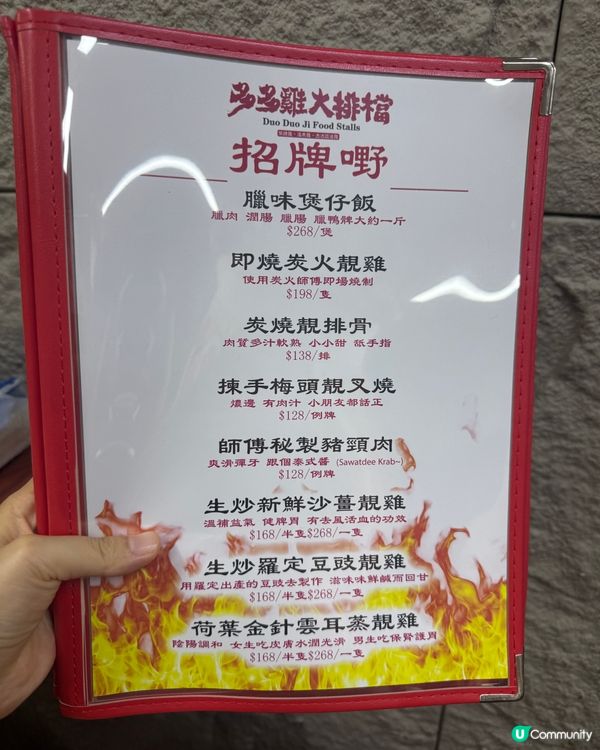 多多雞大排檔
Duo Duo Ji Food Stalls
招牌嘢
臘味煲仔飯
臘肉 潤腸 臘腸 臘鴨髀大約一斤
$268/煲
即燒炭火靚雞
使用炭火師傅即場燒制
$198/隻
炭燒靚排骨
肉質多汁軟熟 小小甜 舐手指
$138/排
揀手梅頭靚叉燒
燶邊 有肉汁 小朋友都話正
$128/例牌
師傅秘製豬頸肉
爽滑彈牙 跟個泰式醬 (Sawatdee Krab~)
$128/例牌
生炒新鮮沙薑靚雞
溫補益氣 健脾胃 有去風活血的功效
$168/半隻$268/一隻
生炒羅定豆豉靚雞
用羅定出產的豆豉去製作 滋味味鮮鹹而回甘
$168/半隻$268/一隻
荷葉金針雲耳蒸靚雞
陰陽調和 女生吃皮膚水潤光滑 男生吃保腎護胃
$168/半隻$268/一隻
U Community